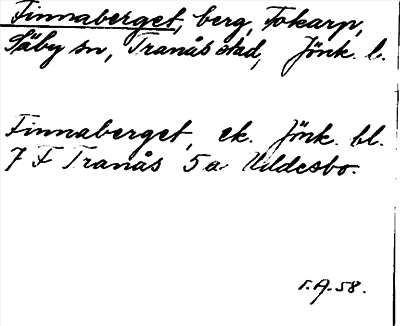 Finnaberget, berg, Tokarp,
Säby sn, Tranås stad, Jönk. l.
Finnaberget, ek. Jönk. bl.
7 F Tranås 5 a Uldesbo.
A. 58.